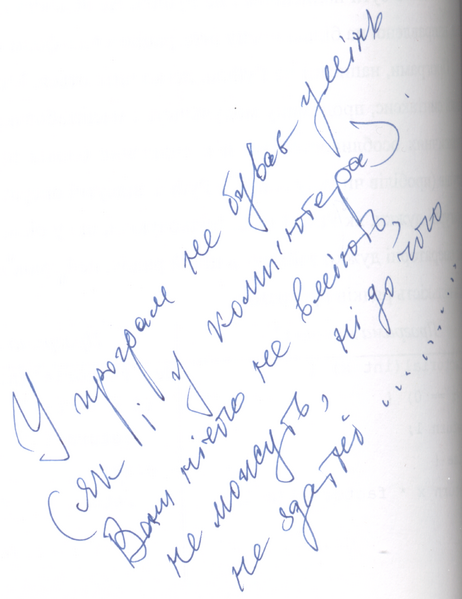 У програм не буває умінь
(як і у комп'ютера)
Вони нічого не вміють,
не можуть, ні до чого
не здатні ..........